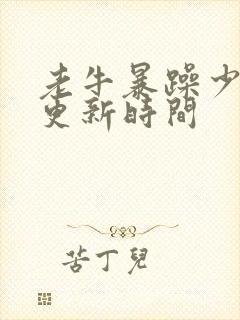 老牛暴躁少
更新時間
苦丁兒